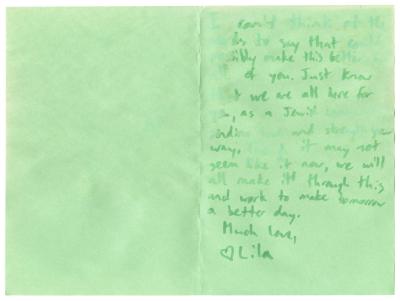 I can't think of the
words to say that could
possibly make this better
of you. Just know
that we are all here for
you, as a Jewish
and strength your
way, it may not
seem like it now, we will
all make it through this
and work to make tomorrow
a better day.
Much love,
♡ Lila